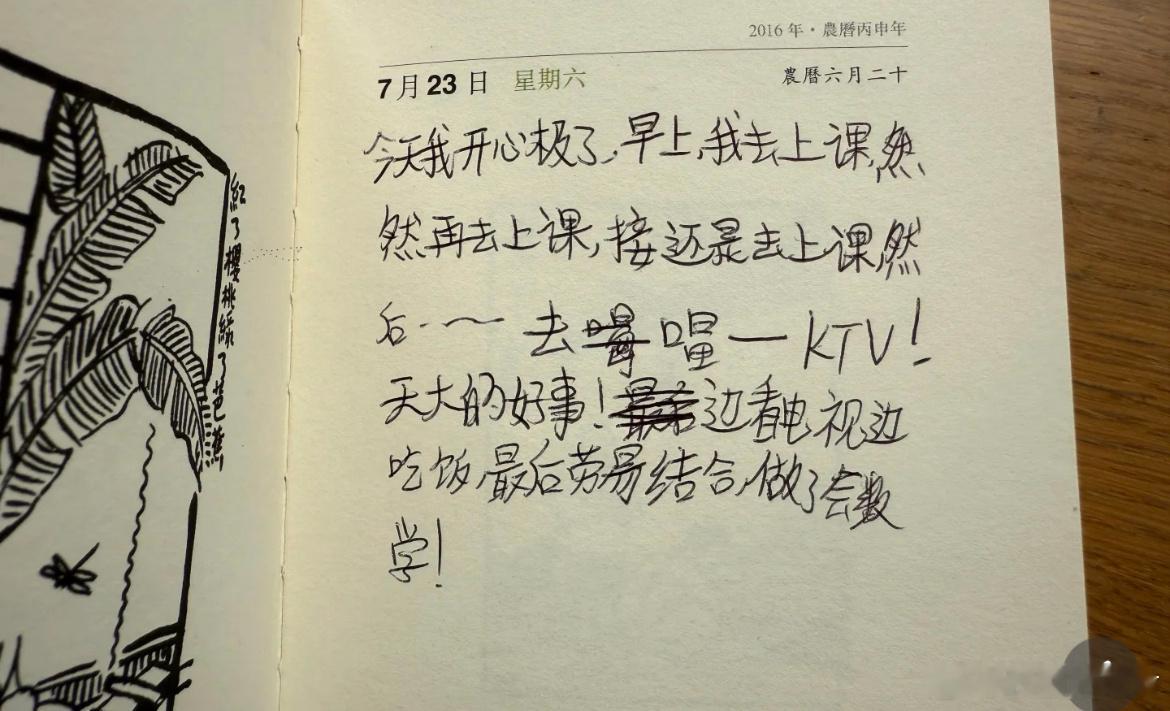 紅了櫻桃綠了芭蕉
2016 年・農曆丙申年
7月23日 星期六 農曆六月二十
今天我开心极了,早上,我去上课,然
然再去上课,接还是去上课,然
后·一~ 去 唱一KTV!
天大的好事!边看电视边
吃饭,最后劳易结合,做了会数
学!